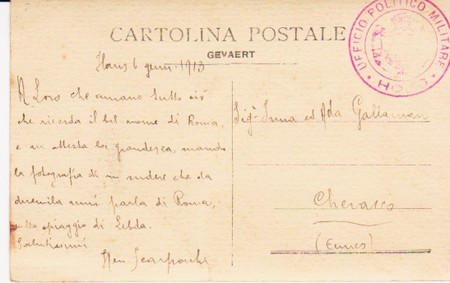 CARTOLINA POSTALE
GEVAERT
UFFICIO POLITICO MILITARE
HOMS
Homs 6 genn. 1913
A Loro che amano tutto ciò
che ricorda il bel nome di Roma,
e ne attesta la grandezza, mando
la fotografia di un rudere che da
duemila anni parla di Roma,
sulla spiaggia di Lebda.
Salutissimi
Sig.ne Irma ed Ada
Cherasco
(Cuneo)